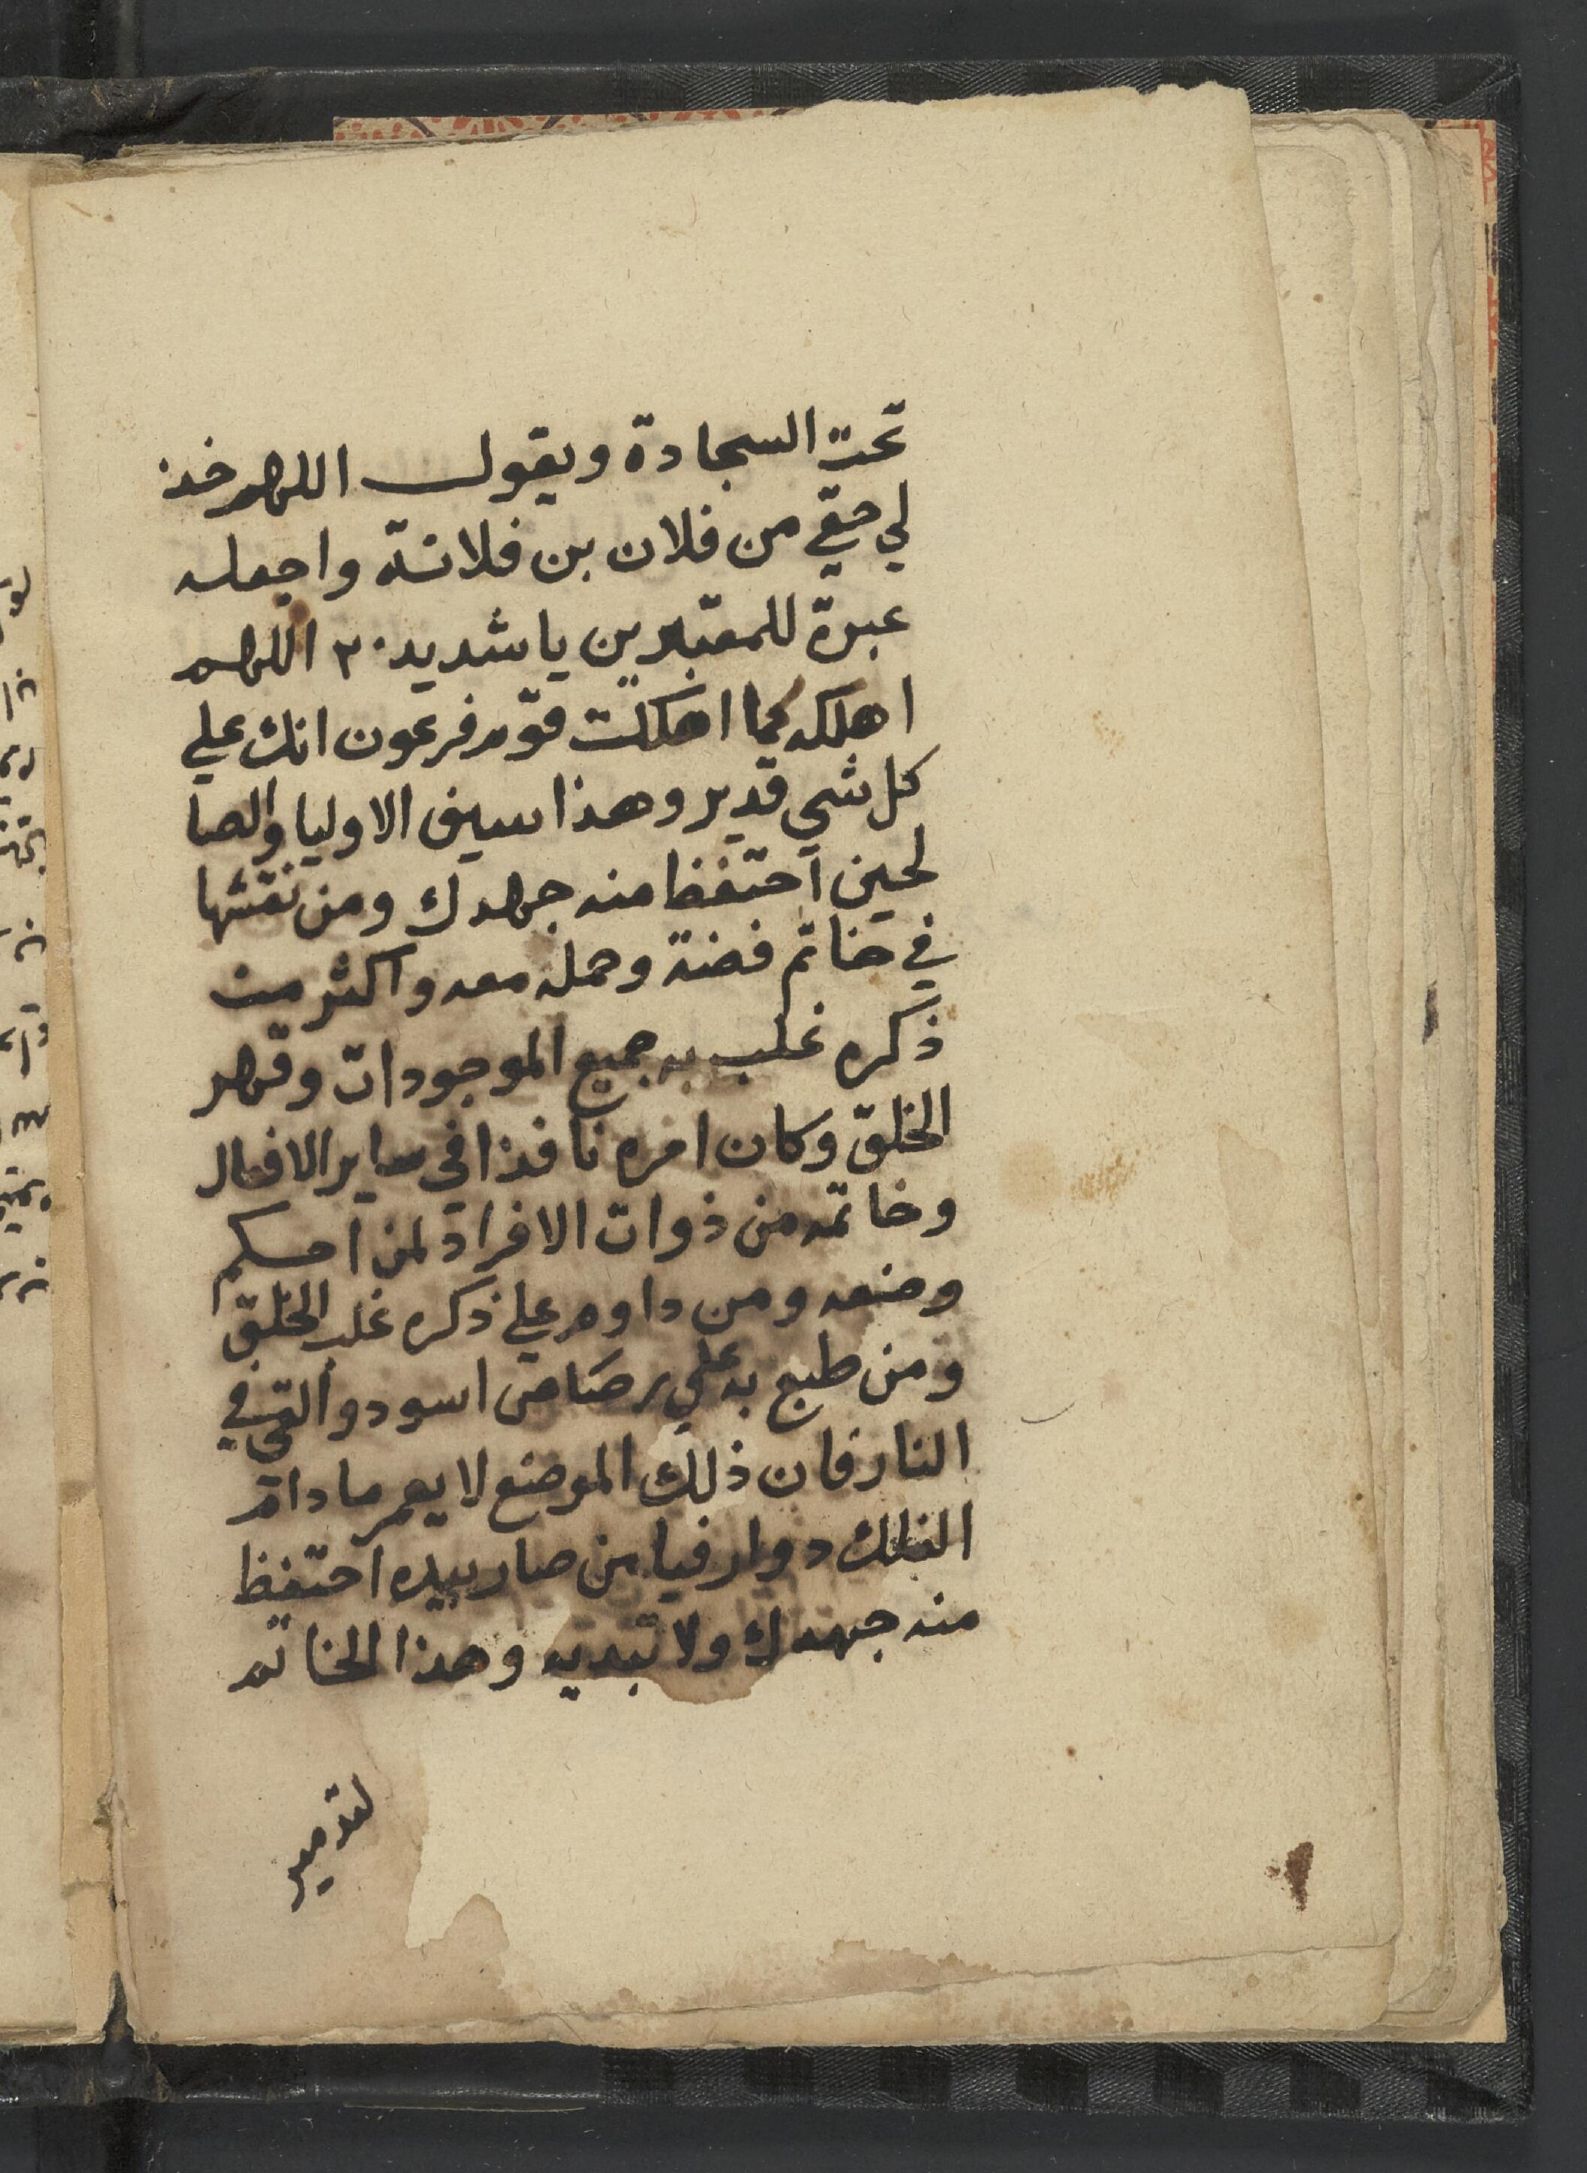 تحت السجادة ويقول اللهم خذ
لي حقي من فلان بن فلانة واجعله
عبرة للمعتبرين يا شديد ٣ اللهم
اهلكه كما اهلكت قوم فرعون انك علي
كل شي قدير وهذا سيف الاوليا والصا
لحين احتفظ منه جهدك ومن نقشها
في خاتم فضة وحمله معه واكثر من
ذكره غلب به جميع الموجودات وقهر
الخلق وكان امره نافذا في ساير الافعال
وخاتمه من ذوات الافراد لمن احكم
وضعه ومن داوم علي ذكره غلب الخلق
ومن طبع به علي رصاص اسود والقي في
النار فان ذلك الموضع لا يعمر ما دام
الفلك دوار فيا من صار بيده احتفظ
منه جهدك ولا تبديه وهذا الخاتم
لتدمير